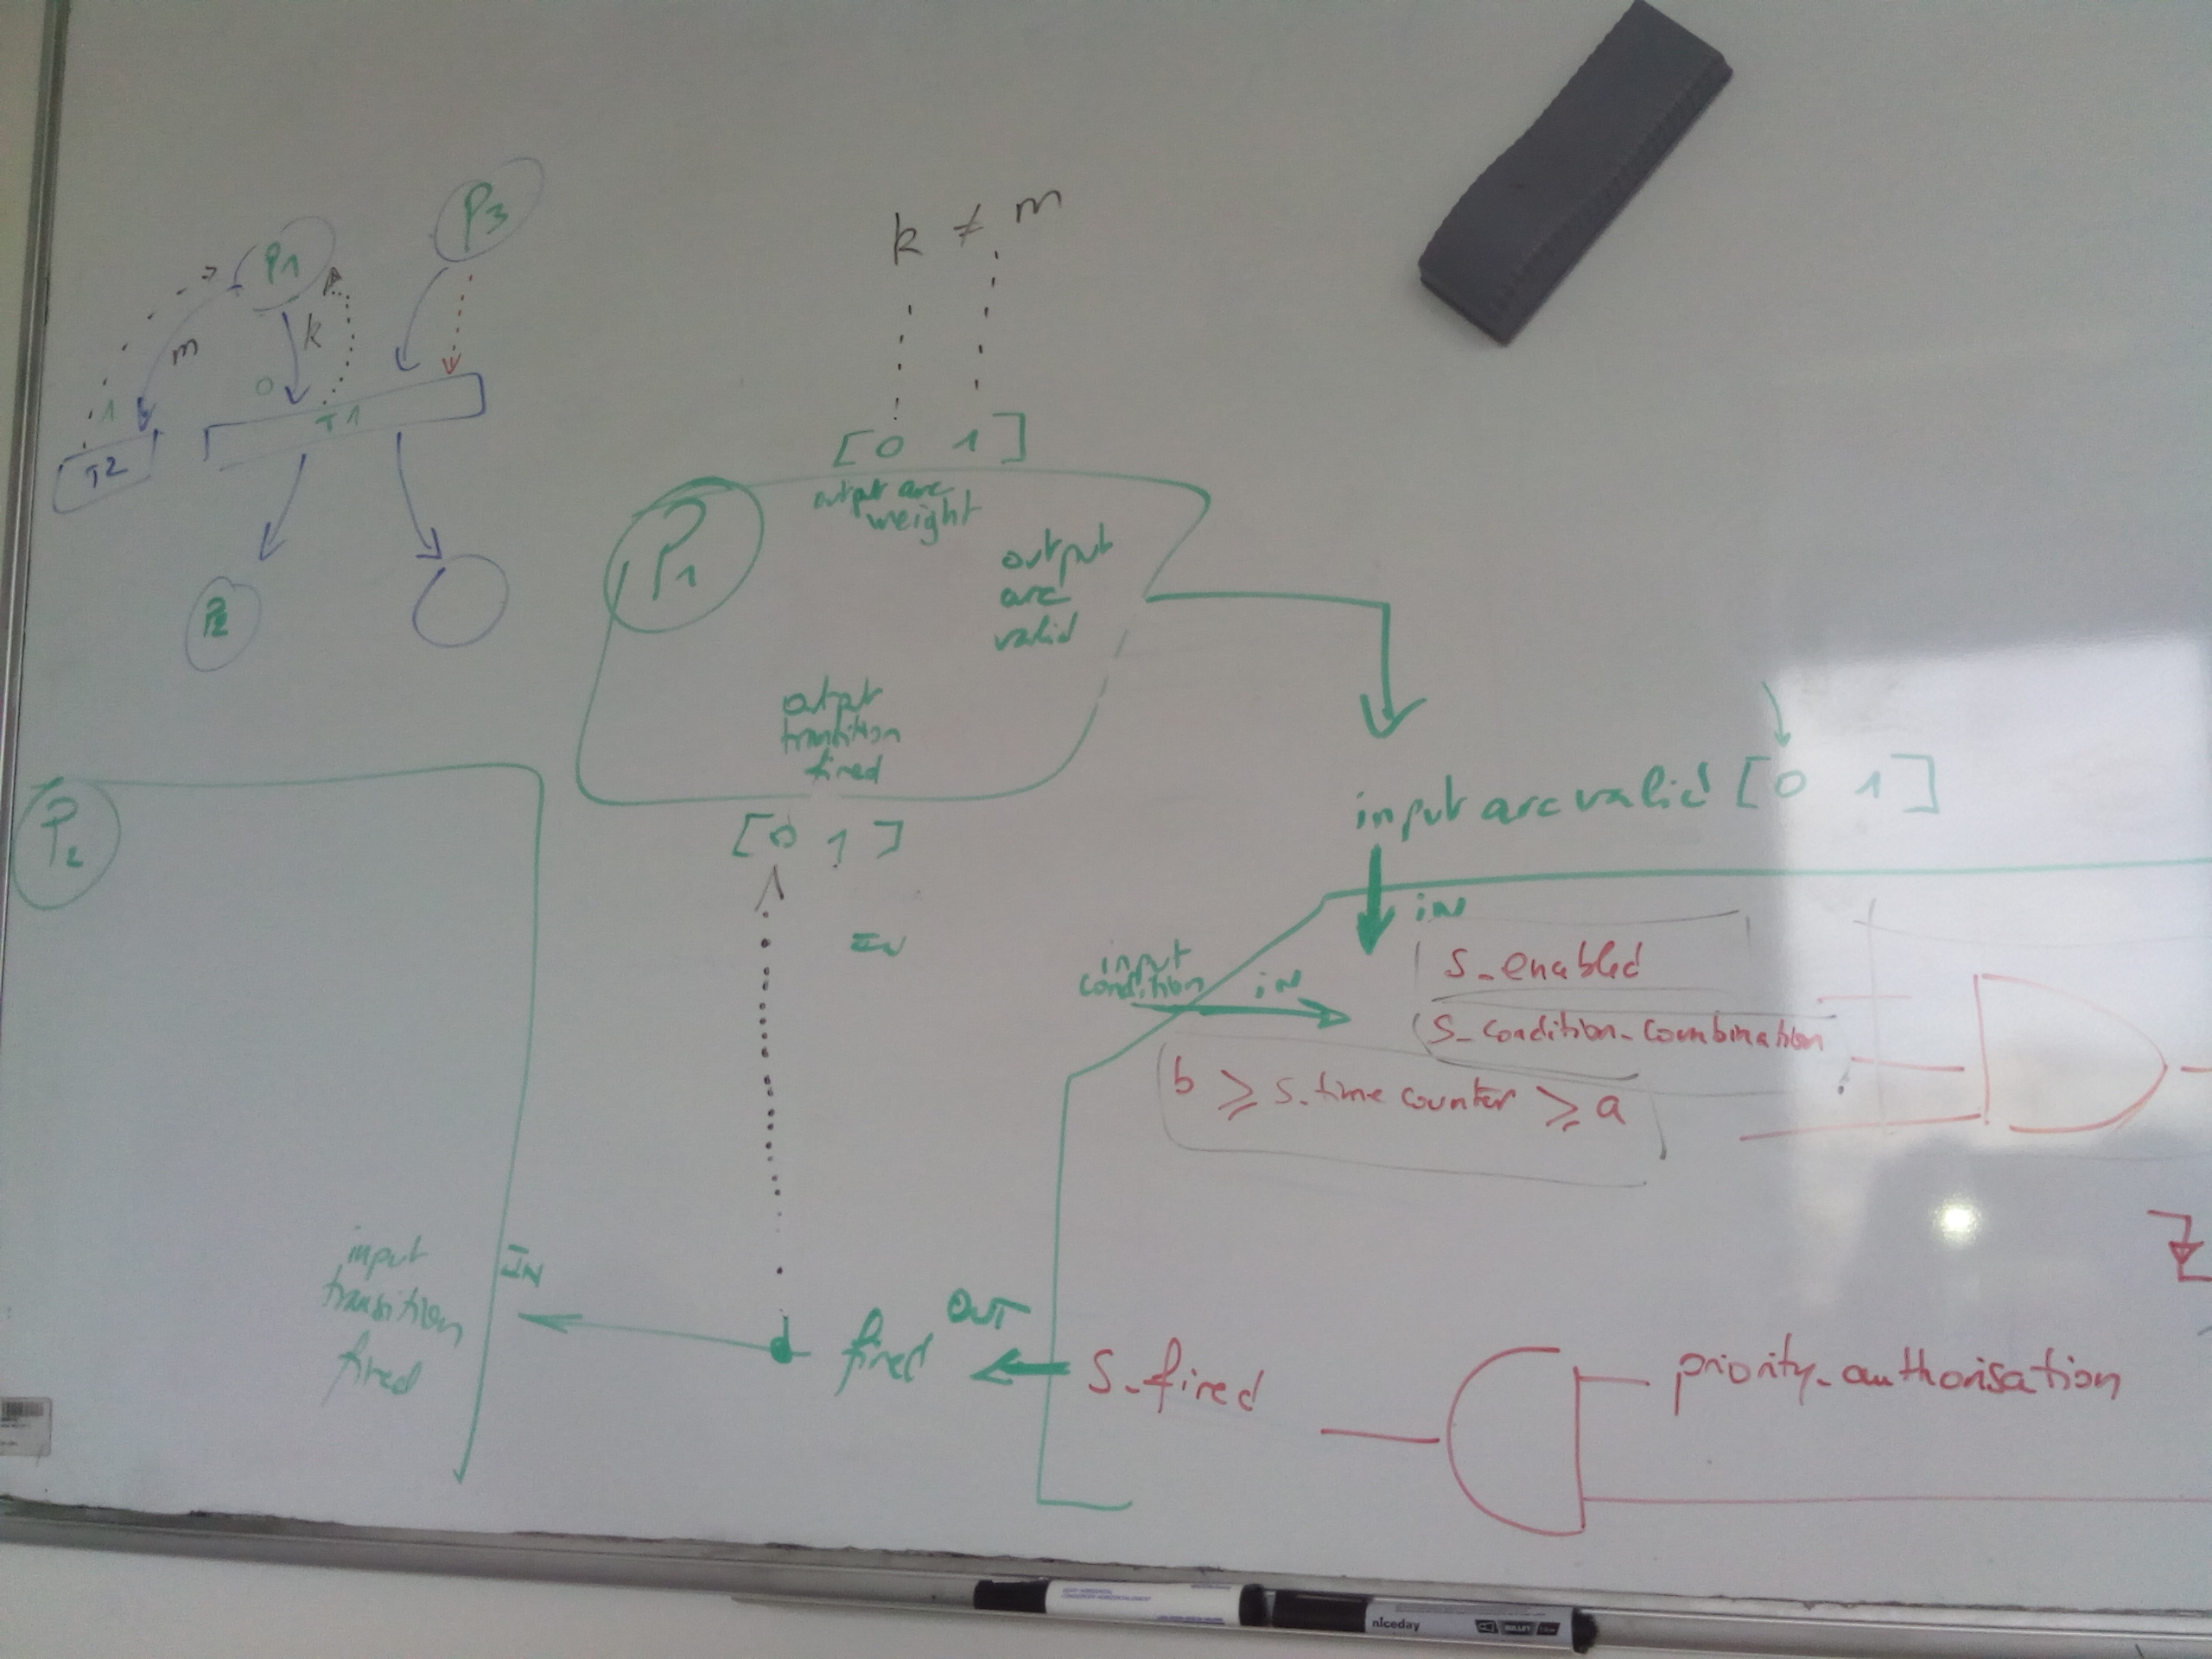 P3
P1
k ≠ m
m
k
0
1
T1
T2
[0 1]
output arc
weight
P1
output
arc
valid
P2
output
transition
fired
input arc valid [0 1]
P2
[0 1]
IN
iN
input
condition
iN
s_enabled
s_condition_combination
b ≥ s_time counter ≥ a
input
transition
fired
IN
OUT
fired
s_fired
priority_authorisation
niceday
BULLET